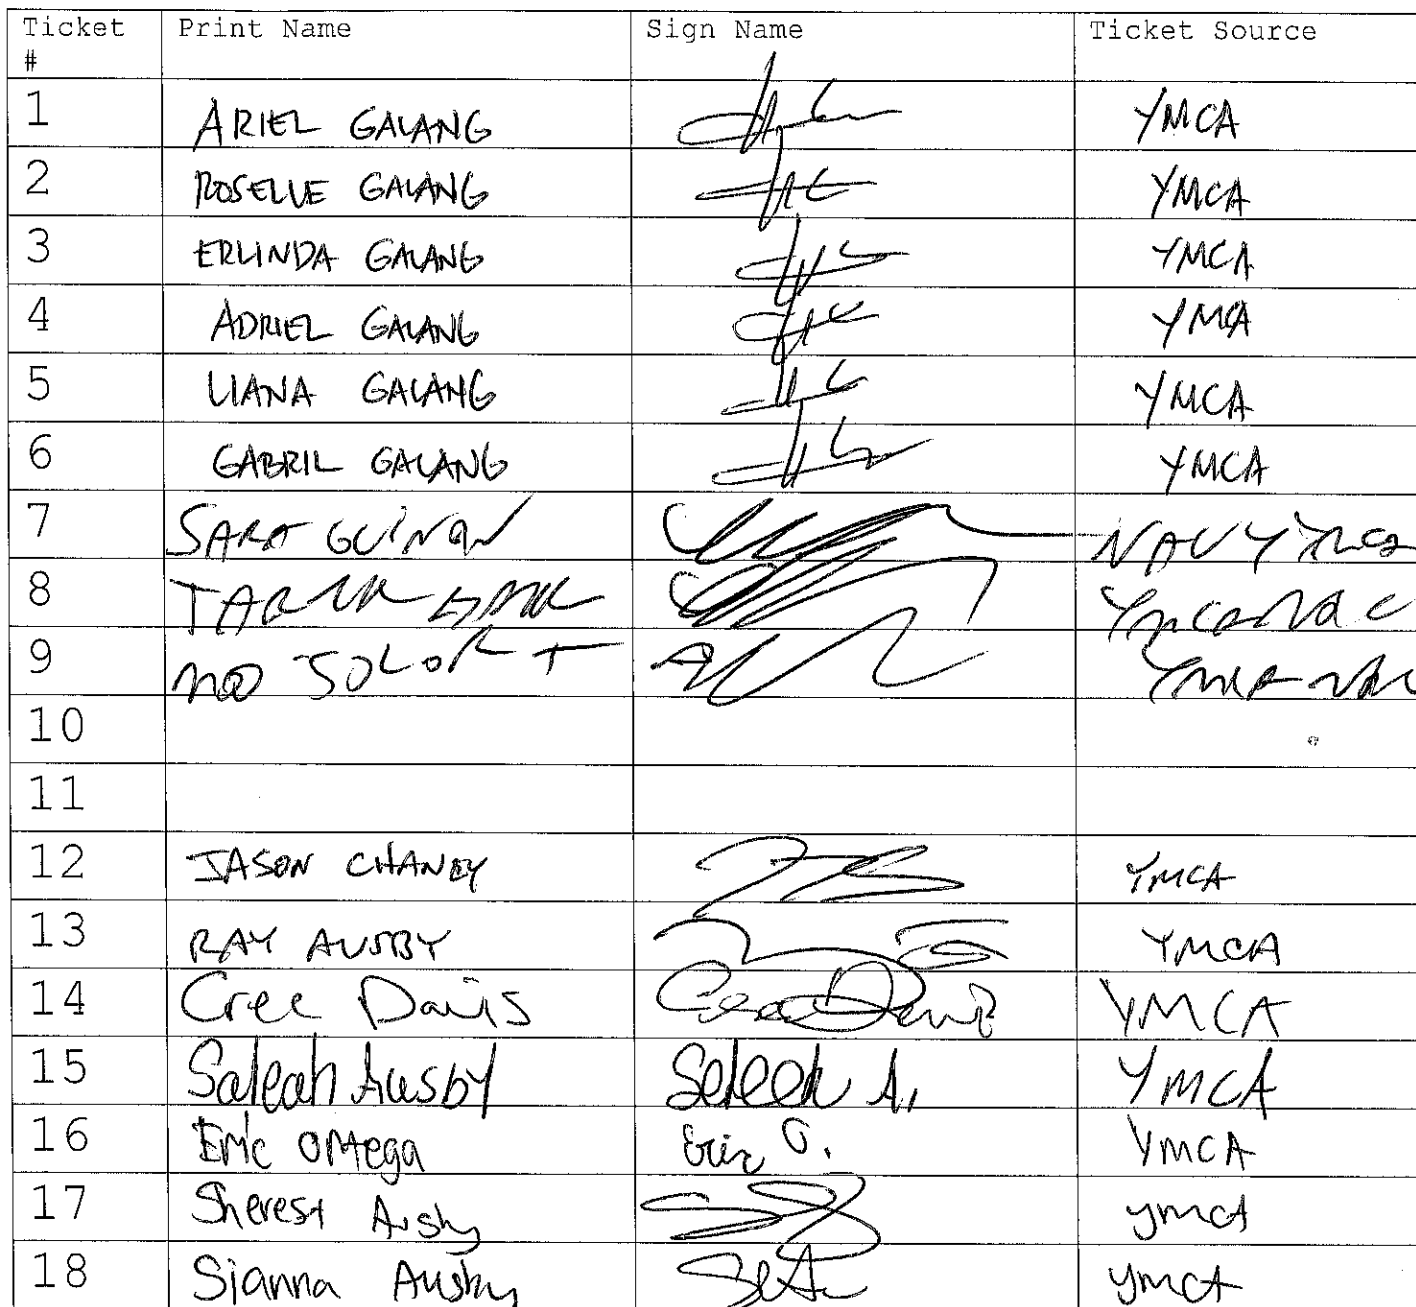 Ticket # Print Name Sign Name Ticket Source
1 ARIEL GALANG YMCA
2 ROSELLE GALANG YMCA
3 ERLINDA GALANG YMCA
4 ADRIEL GALANG YMCA
5 LIANA GALANG YMCA
6 GABRIL GALANG YMCA
7 SARA NAVY YMCA
8
9
10
11
12 JASON CHANEY YMCA
13 RAY AUSBY YMCA
14 Cree Davis Cree Davis YMCA
15 Saleah Ausby Saleah A. YMCA
16 Eric Ortega Eric O. YMCA
17 Sherest Ausby YMCA
18 Sianna Ausby YMCA